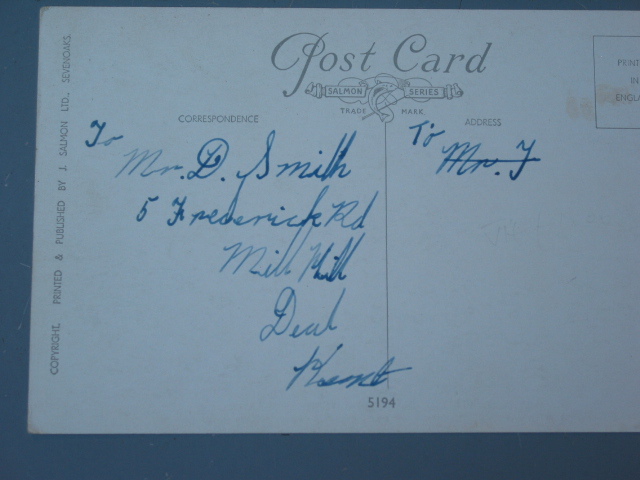 Post Card
SALMON SERIES
TRADE MARK.
CORRESPONDENCE
ADDRESS
To
Mr. D. Smith
5 Frederick Rd
Mill Hill
Deal
Kent
To
Mr. J
PRINT
IN
ENGLA
5194
COPYRIGHT. PRINTED & PUBLISHED BY J. SALMON LTD., SEVENOAKS.